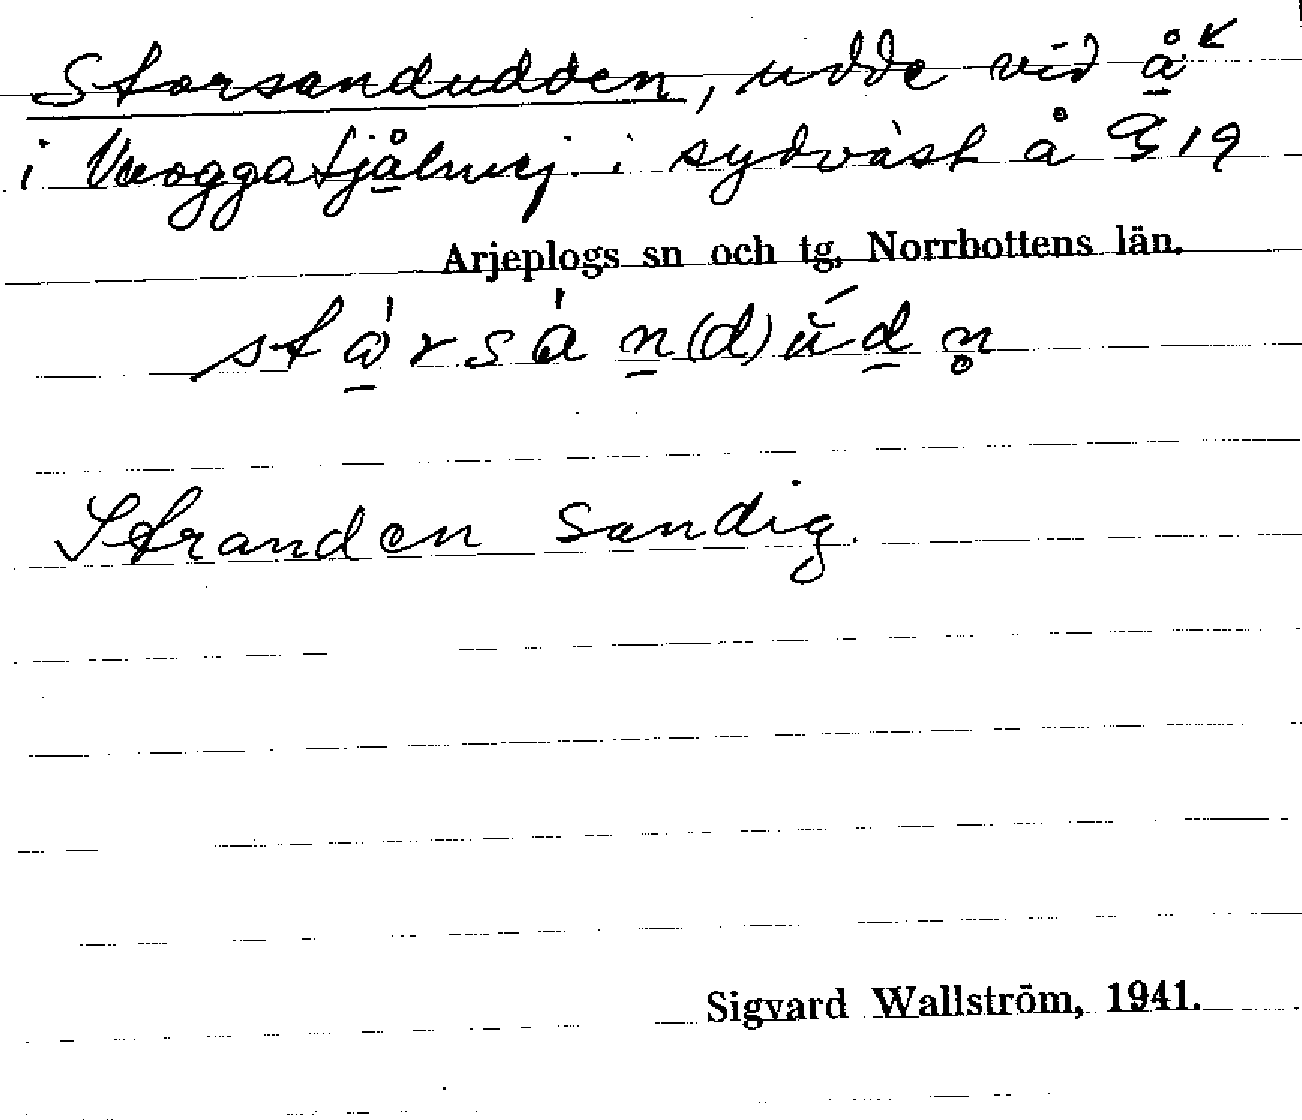 Storsandudden, udde vid å
i Vuoggatjålmej. i sydväst å G 19
Arjeplogs sn och tg, Norrbottens län.
stå̀rsàn(d)ŭ́dn̥
Stranden sandig.
Sigvard Wallström, 1941.